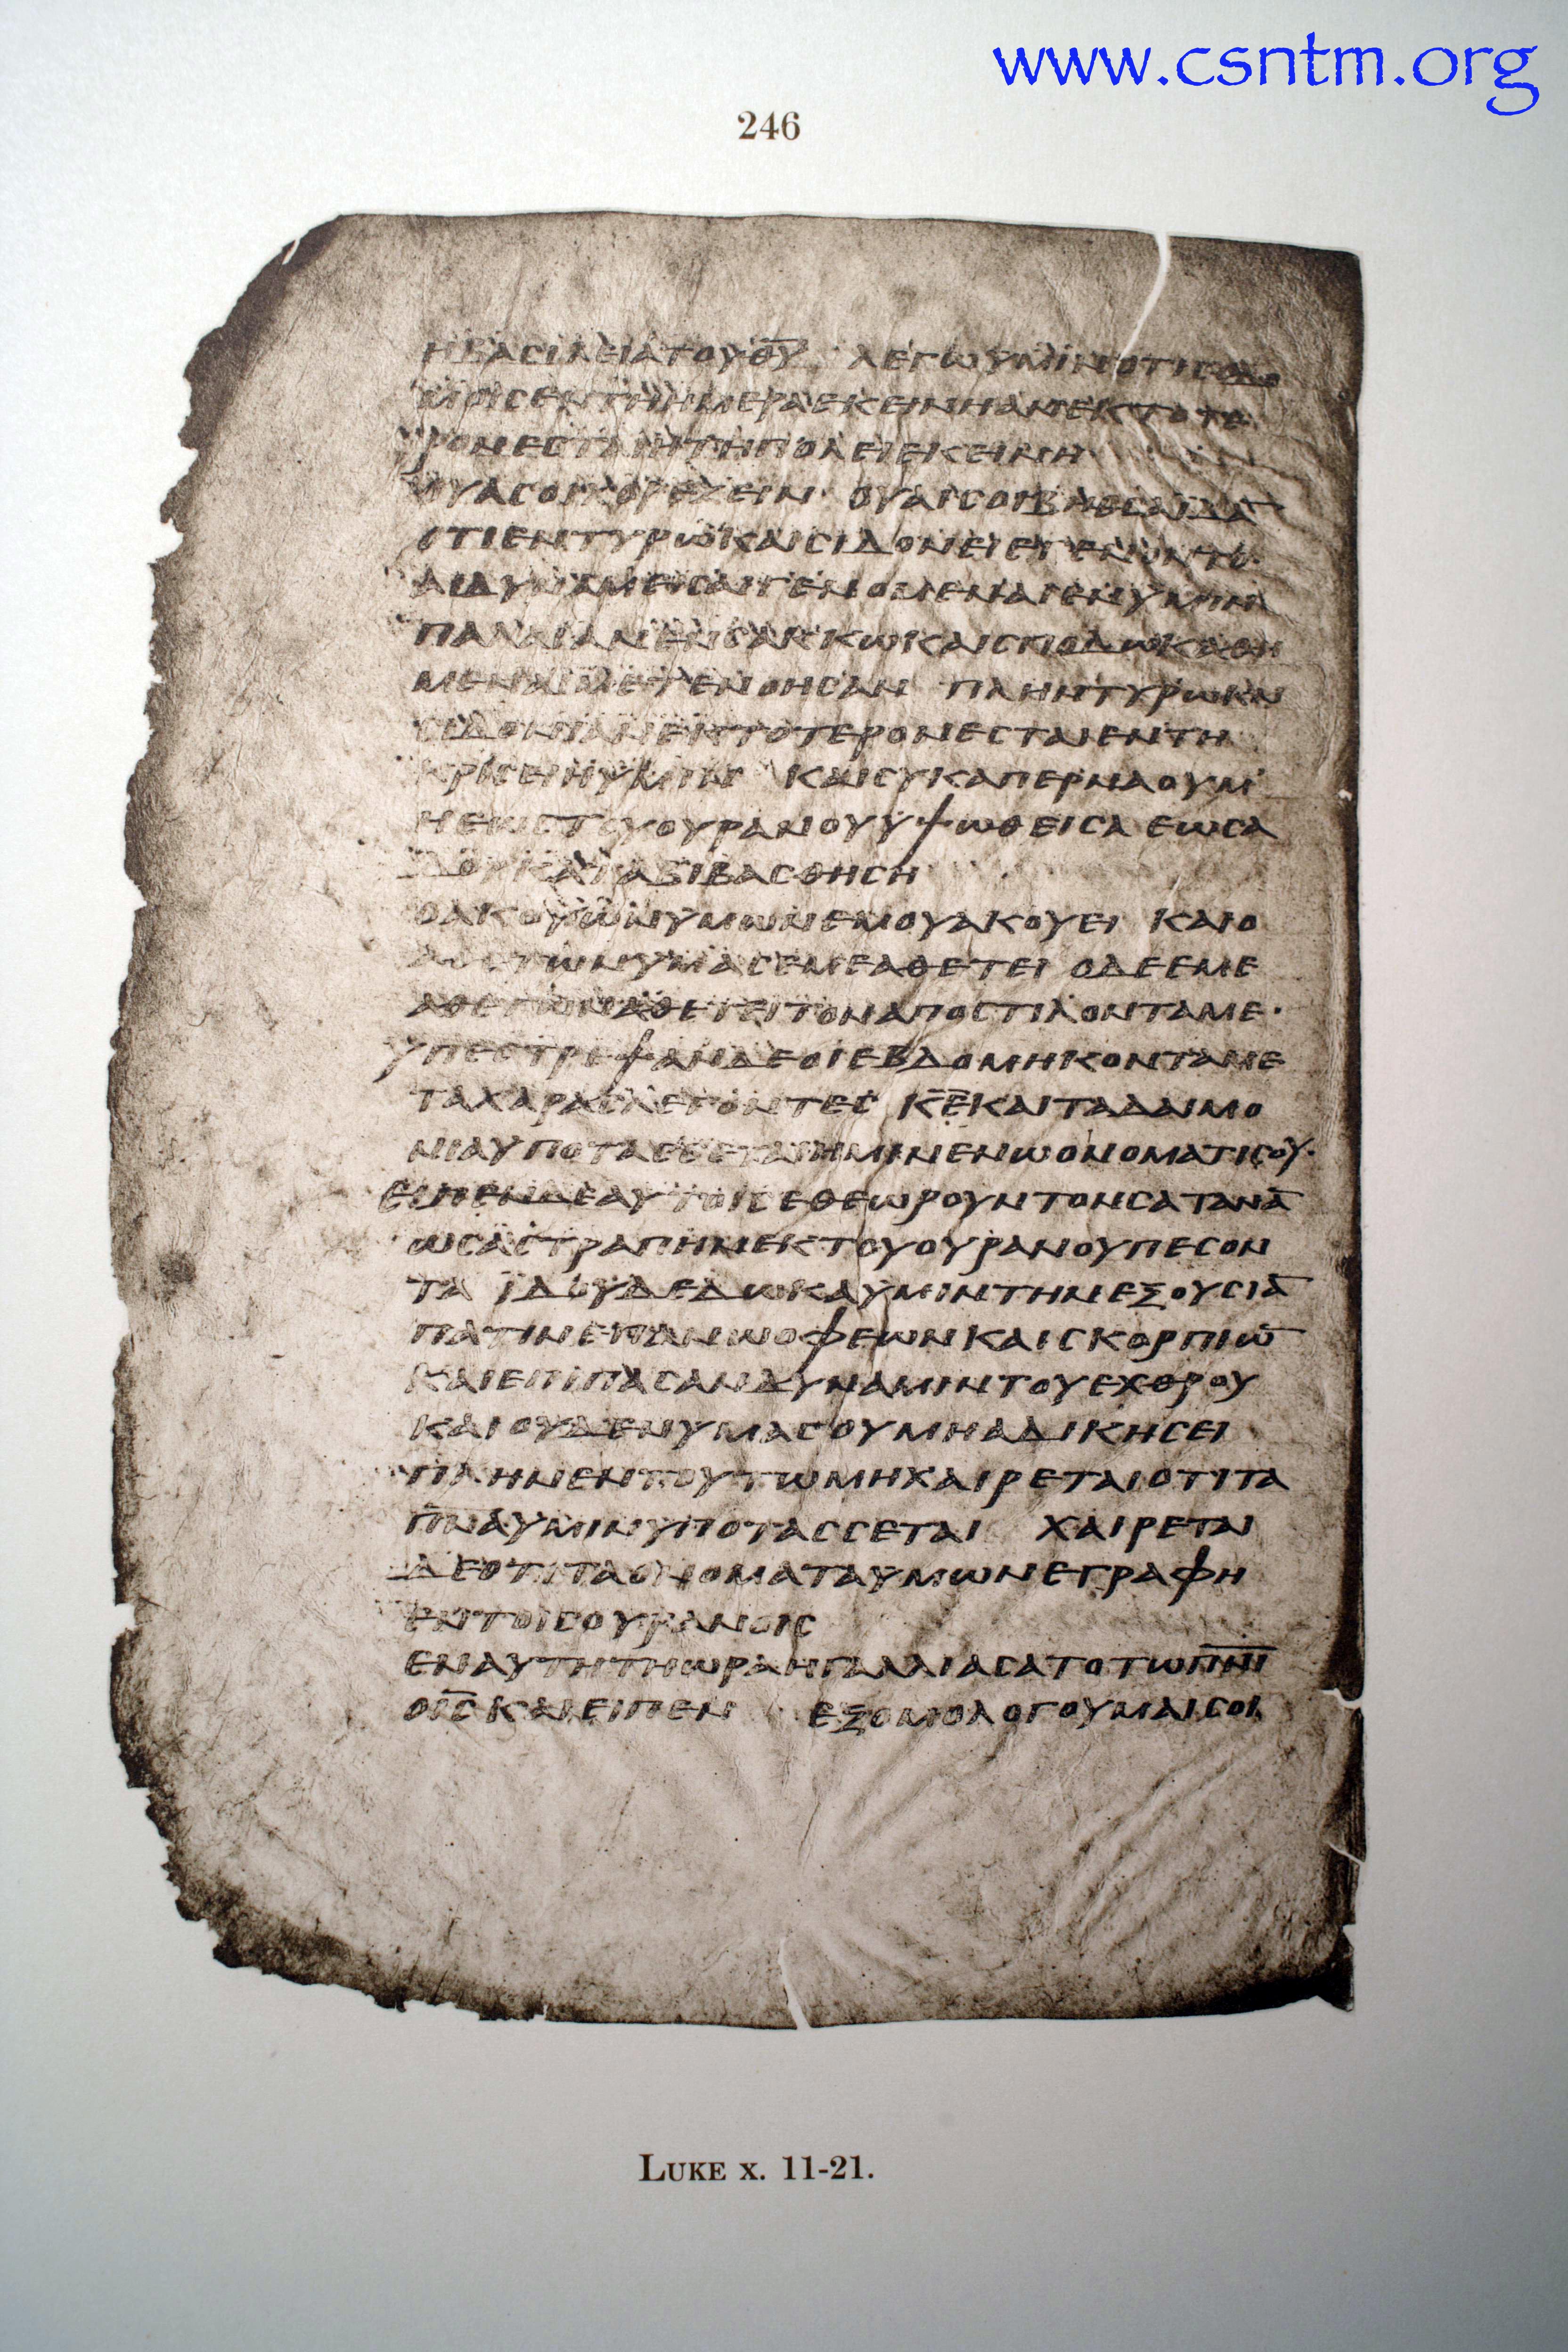 www.csntm.org
246
ΗΒΑCΙΛΕΙΑΤΟΥΘΥ ΛΕΓΩΥΜΙΝΟΤΙCΟΔΟ
ΜΟΙCΕΝΤΗΗΜΕΡΑΕΚΕΙΝΗΑΝΕΚΤΟΤΕ
ΡΟΝΕCΤΑΙΗΤΗΠΟΛΕΙΕΚΕΙΝΗ
ΟΥΑΙCΟΙΧΟΡΕΖΕΙΝ ΟΥΑΙCΟΙΒΗΘCΑΙΔΑ
ΟΤΙΕΝΤΥΡΩΚΑΙCΙΔΟΝΕΙΕΓΕΝΟΝΤΟ
ΑΙΔΥΝΑΜΕΙCΑΙΓΕΝΟΜΕΝΑΙΕΝΥΜΙΝ
ΠΑΛΑΙΑΝΕΝCΑΚΚΩΚΑΙCΠΟΔΩΚΑΘΗ
ΜΕΝΑΙΜΕΤΕΝΟΗCΑΝ ΠΛΗΝΤΥΡΩΚΑΙ
CΙΔΟΝΙΑΝΕΚΤΟΤΕΡΟΝΕCΤΑΙΕΝΤΗ
ΚΡΙCΕΙΗΥΜΙΝ ΚΑΙCΥΚΑΠΕΡΝΑΟΥΜ
ΗΕΩCΤΟΥΟΥΡΑΝΟΥΥΨΩΘΕΙCΑ ΕΩCΑ
ΔΟΥΚΑΤΑΒΙΒΑCΘΗCΗ
ΟΑΚΟΥΩΝΥΜΩΝΕΜΟΥΑΚΟΥΕΙ ΚΑΙΟ
ΑΘΕΤΩΝΥΜΑCΕΜΕΑΘΕΤΕΙ ΟΔΕΕΜΕ
ΑΘΕΤΩΝΑΘΕΤΕΙΤΟΝΑΠΟCΤΙΛΟΝΤΑΜΕ·
ΥΠΕCΤΡΕΨΑΝΔΕΟΙΕΒΔΟΜΗΚΟΝΤΑΜΕ
ΤΑΧΑΡΑCΛΕΓΟΝΤΕC ΚΕΚΑΙΤΑΔΑΙΜΟ
ΝΙΑΥΠΟΤΑCCΕΤΑΙΗΜΙΝΕΝΩΟΝΟΜΑΤΙCΟΥ·
ΕΙΠΕΝΔΕΑΥΤΟΙCΕΘΕΩΡΟΥΝΤΟΝCΑΤΑΝΑ
ΩCΑCΤΡΑΠΗΝΕΚΤΟΥΟΥΡΑΝΟΥΠΕCΟΝ
ΤΑ ΙΔΟΥΔΕΔΩΚΑΥΜΙΝΤΗΝΕΞΟΥCΙΑ
ΠΑΤΙΝΕΠΑΝΩΟΦΕΩΝΚΑΙCΚΟΡΠΙΩ
ΚΑΙΕΠΙΠΑCΑΝΔΥΝΑΜΙΝΤΟΥΕΧΘΡΟΥ
ΚΑΙΟΥΔΕΝΥΜΑCΟΥΜΗΑΔΙΚΗCΕΙ
ΠΛΗΝΕΝΤΟΥΤΩΜΗΧΑΙΡΕΤΑΙΟΤΙΤΑ
ΠΝΑΥΜΙΝΥΠΟΤΑCCΕΤΑΙ ΧΑΙΡΕΤΑΙ
ΔΕΟΤΙΤΑΟΝΟΜΑΤΑΥΜΩΝΕΓΡΑΦΗ
ΕΝΤΟΙCΟΥΡΑΝΟΙC
ΕΝΑΥΤΗΤΗΩΡΑΗΓΑΛΛΙΑCΑΤΟΤΩΠΝΙ
ΟΙCΚΑΙΕΙΠΕΝ ΕΞΟΜΟΛΟΓΟΥΜΑΙCΟΙ
LUKE X. 11-21.